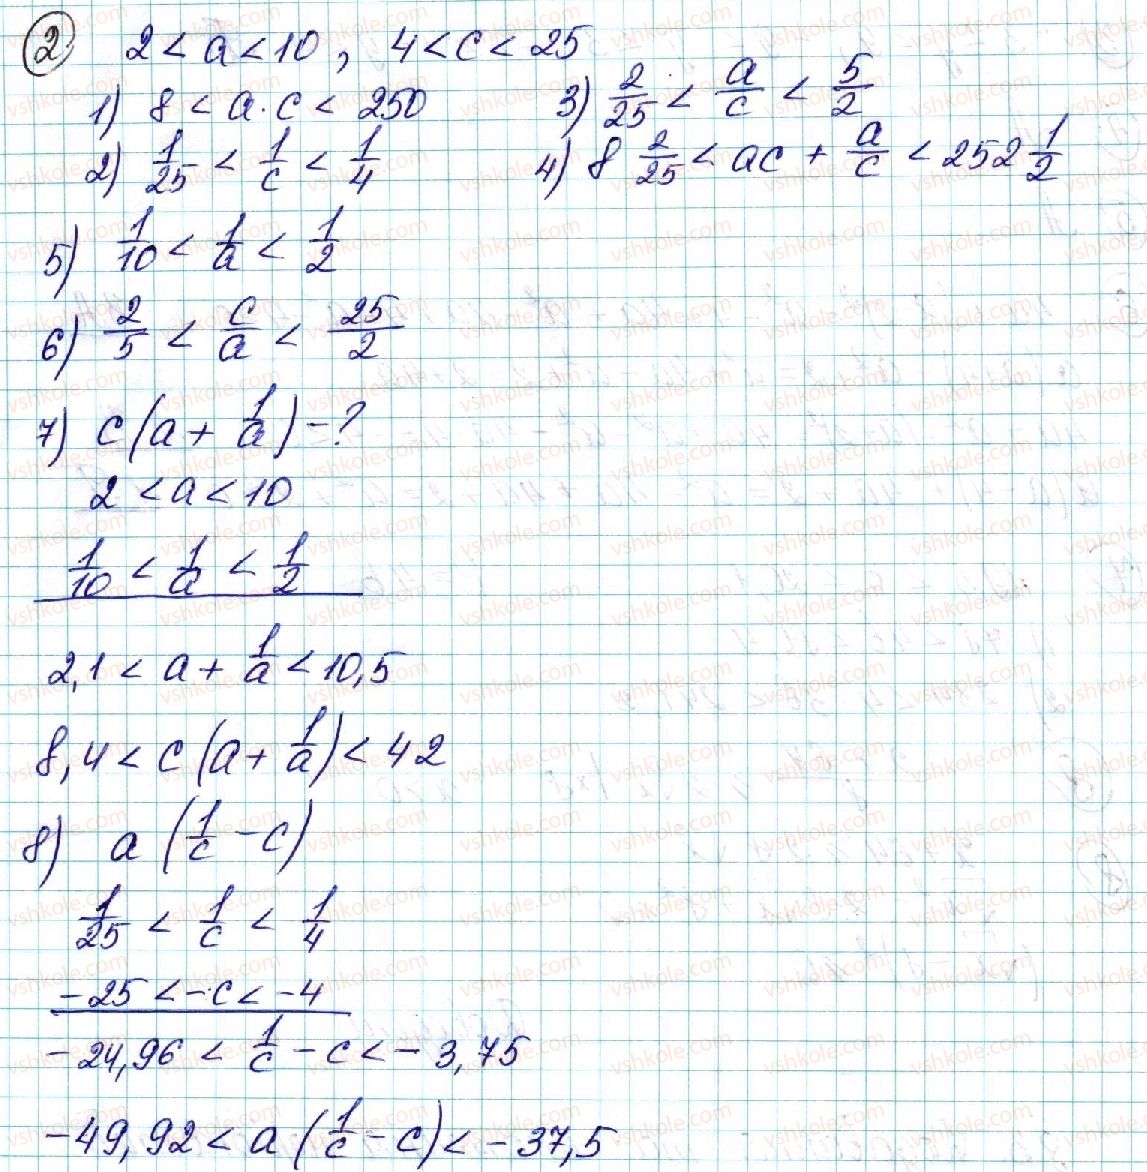 2) 2 < a < 10, 4 < c < 25
1) 8 < a · c < 250
2) 1/25 < 1/c < 1/4
3) 2/25 < a/c < 5/2
4) 8 2/25 < ac + a/c < 252 1/2
5) 1/10 < 1/a < 1/2
6) 2/5 < c/a < 25/2
7) c(a + 1/a) - ?
2 < a < 10
1/10 < 1/a < 1/2
2,1 < a + 1/a < 10,5
8,4 < c(a + 1/a) < 42
8) a(1/c - c)
1/25 < 1/c < 1/4
-25 < -c < -4
-24,96 < 1/c - c < -3,75
-49,92 < a(1/c - c) < -37,5
vshkole.com